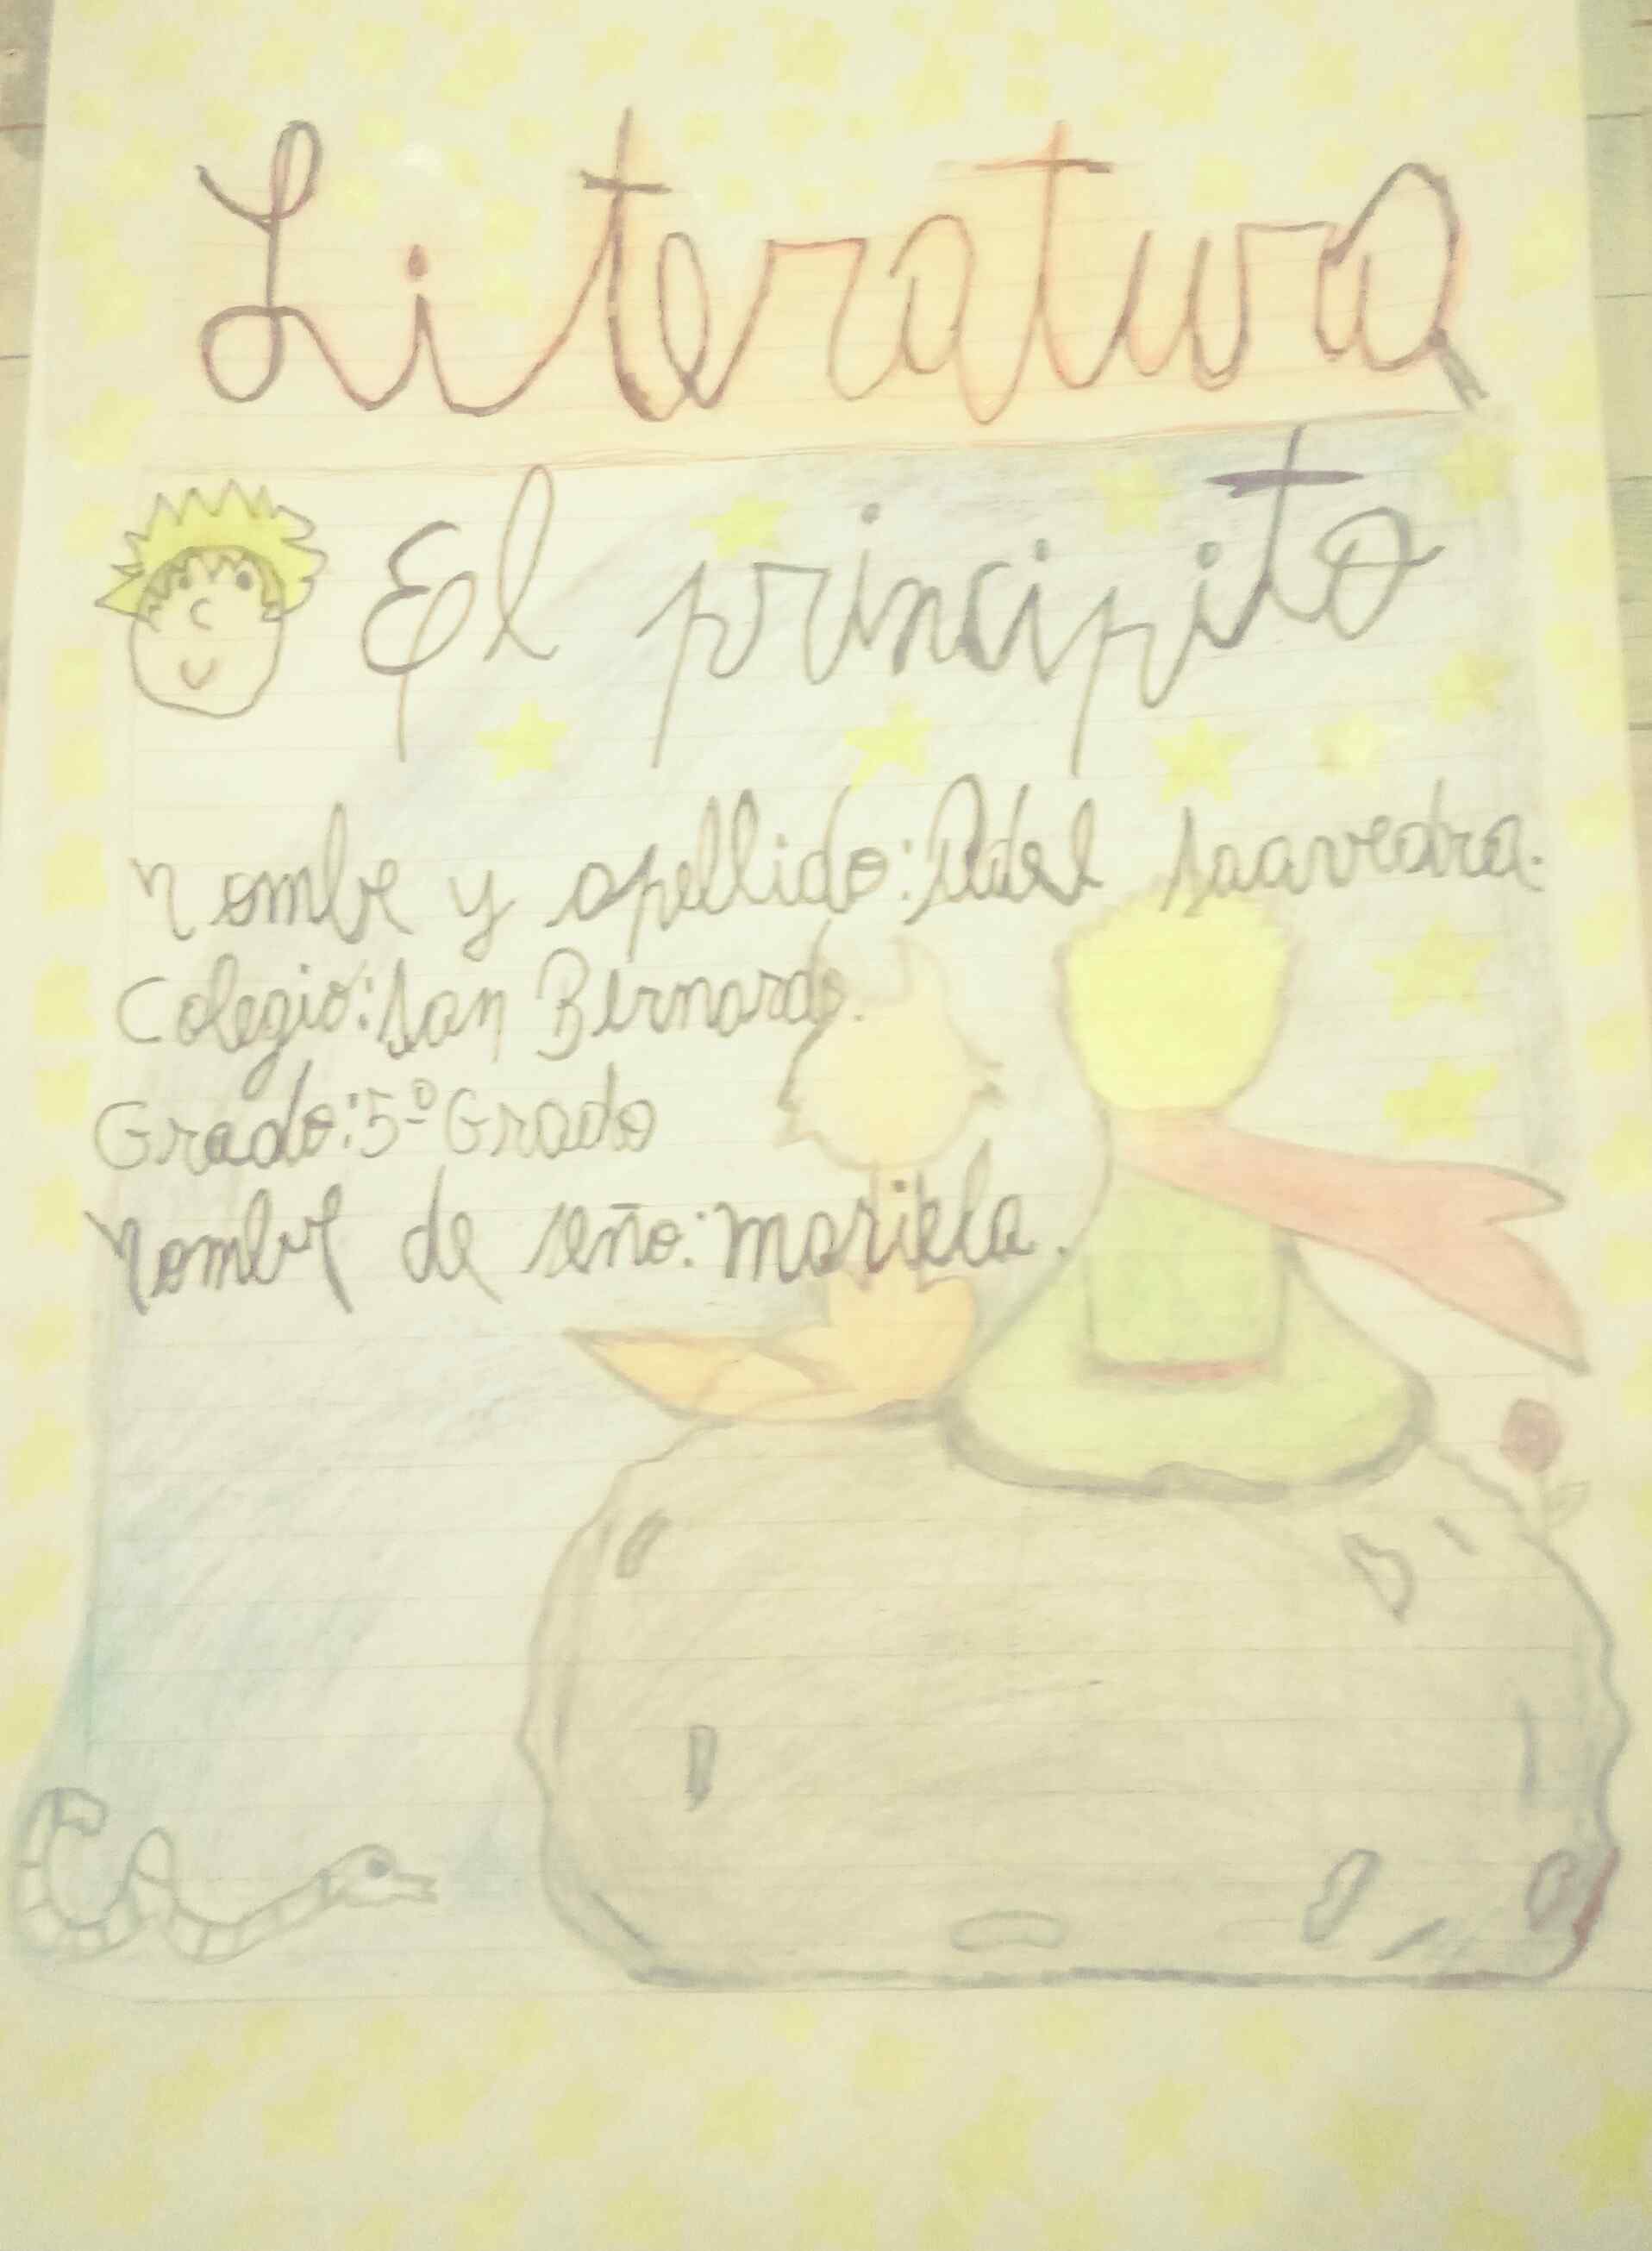 Literatura
El principito
nombre y apellido: Adel saavedra.
Colegio: san Bernardo.
Grado: 5º Grado
nombre de seño: mariela.